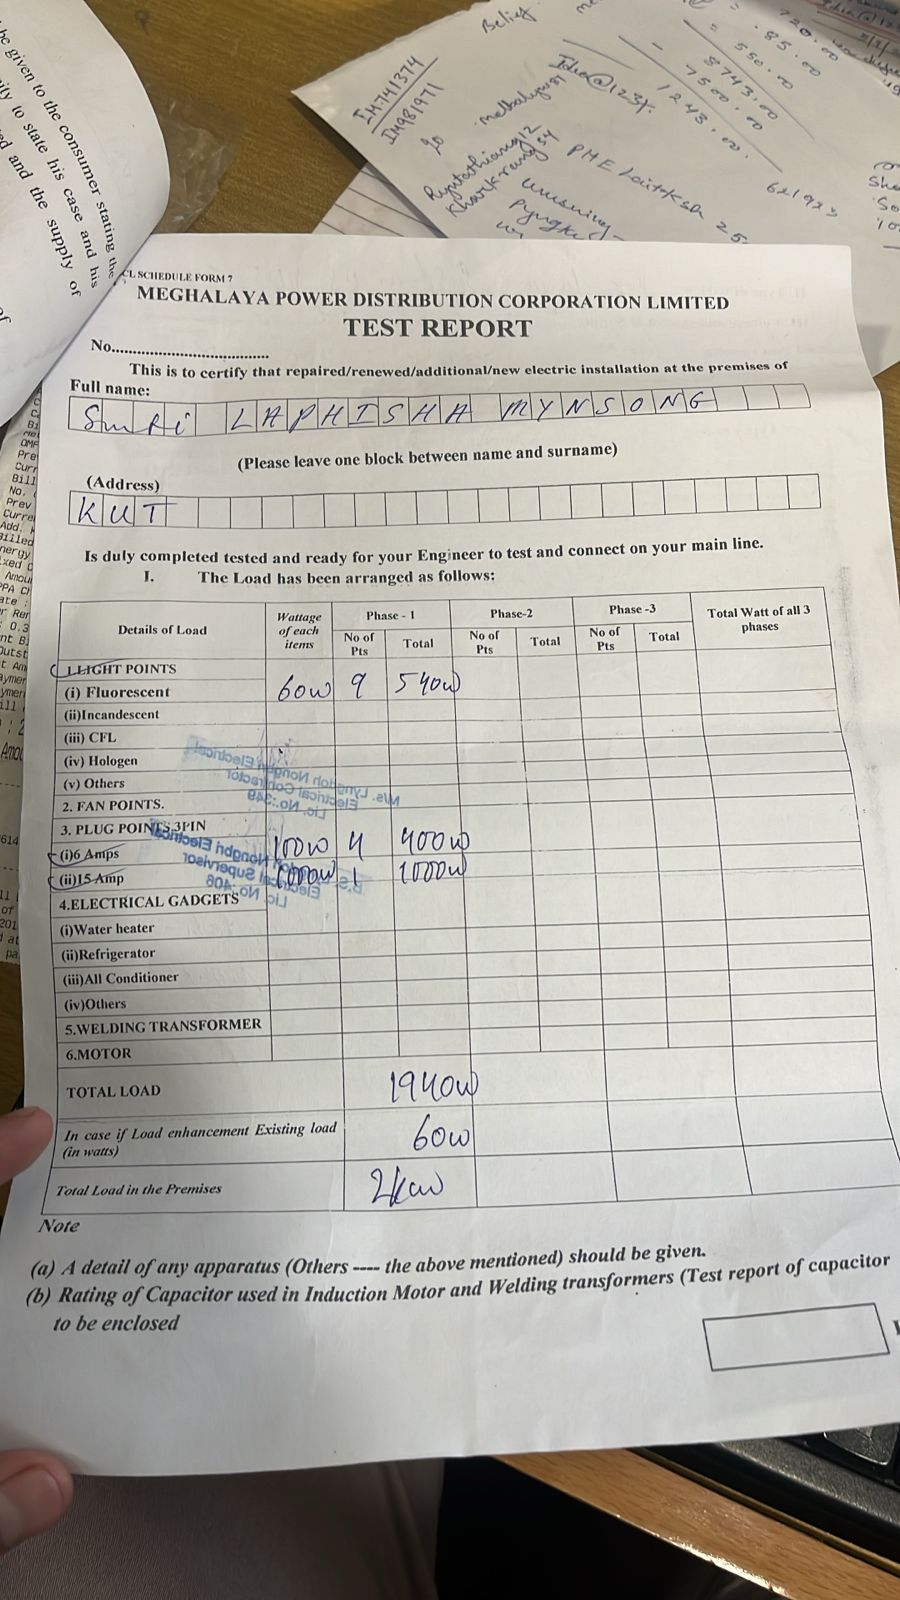 be given to the consumer stating the
to state his case and his
and the supply of
IM741374
IM981971
Belief
720.00
.85.00
550.00
8743.00
7500.00
1243.00.
PHE
CL SCHEDULE FORM 7
MEGHALAYA POWER DISTRIBUTION CORPORATION LIMITED
TEST REPORT
No.....................................
This is to certify that repaired/renewed/additional/new electric installation at the premises of
Full name:
Smti LAPHISHA MYNSONG
(Please leave one block between name and surname)
(Address)
KUT
Is duly completed tested and ready for your Engineer to test and connect on your main line.
I. The Load has been arranged as follows:
Details of Load Wattage of each items Phase - 1 Phase-2 Phase -3 Total Watt of all 3 phases
No of Pts Total No of Pts Total No of Pts Total
1.LIGHT POINTS
(i) Fluorescent 60W 9 540W
(ii)Incandescent
(iii) CFL
(iv) Hologen
(v) Others
M/s. Lyngdoh Nongbri Electrical
Electrical Contractor
Lic. No.:349
2. FAN POINTS.
3. PLUG POINTS,3PIN
(i)6 Amps 100W 4 400W
(ii)15 Amp 1000W 1 1000W
Nongbri Electrical
Electrical Supervisor
Lic. No.-406
4.ELECTRICAL GADGETS
(i)Water heater
(ii)Refrigerator
(iii)All Conditioner
(iv)Others
5.WELDING TRANSFORMER
6.MOTOR
TOTAL LOAD 1940W
In case if Load enhancement Existing load (in watts) 60W
Total Load in the Premises 2kw
Note
(a) A detail of any apparatus (Others ---- the above mentioned) should be given.
(b) Rating of Capacitor used in Induction Motor and Welding transformers (Test report of capacitor
to be enclosed